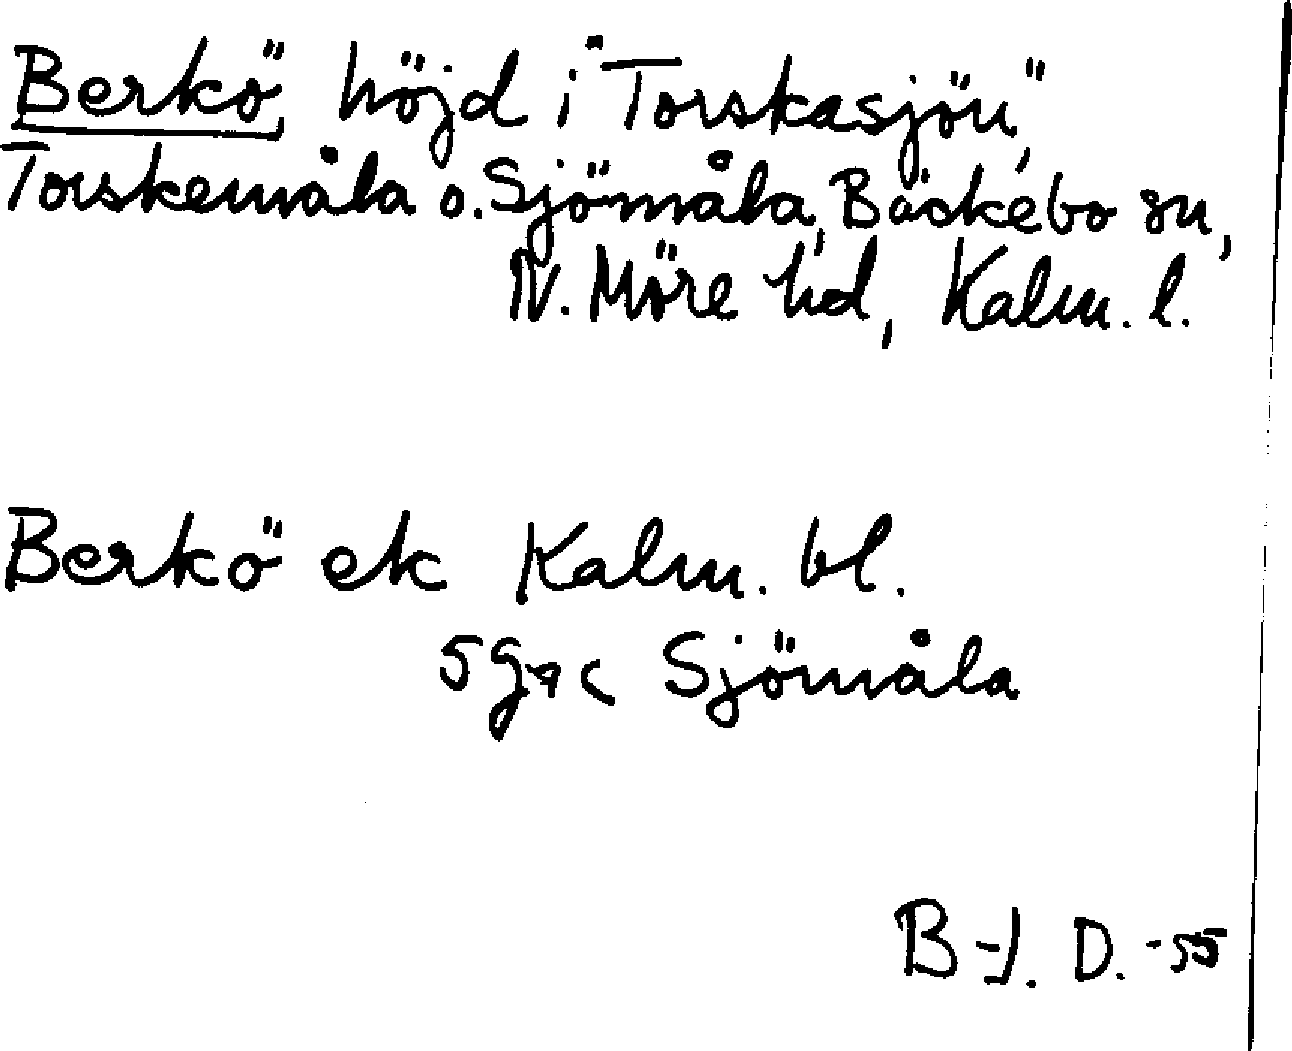 Berkö, höjd i "Torskasjön",
Torskemåla o. Sjömåla, Bäckebo sn,
N. Möre hd, Kalm. l.
Berkö ek Kalm. bl.
5G7c Sjömåla
B-J. D. -55